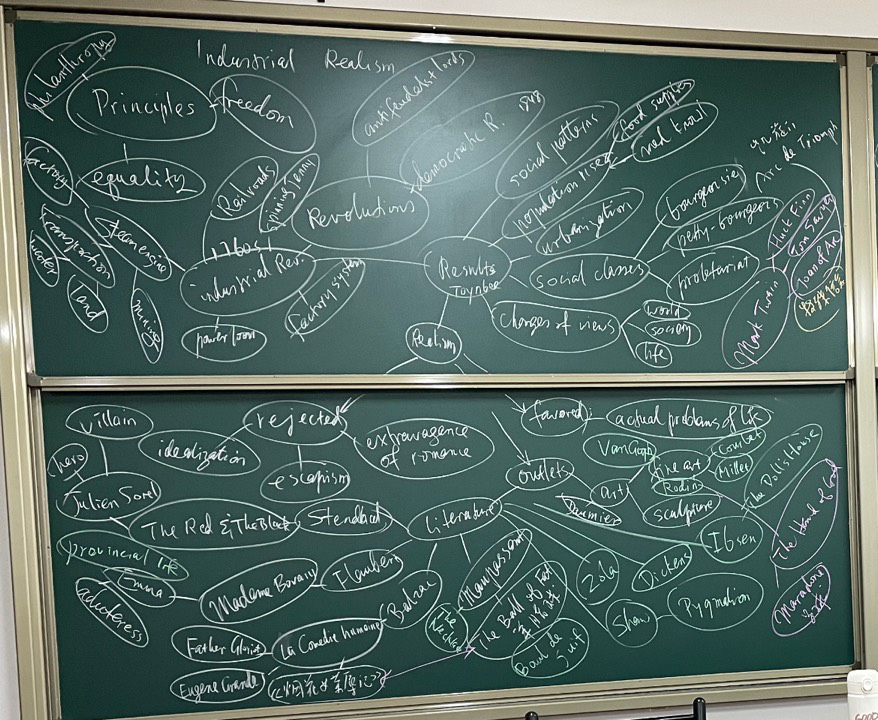 Industrial Realism
philanthropy
Principles
freedom
equality
antifeudalist lords
democratic R. 1848
Revolutions
Railroads
Spinning Jenny
factory
steam engine
transportation
water
land
mining
1760s
industrial Rev.
power loom
factory system
Results
Toynbee
Realism
social patterns
population rised
food supplies
urbanization
social classes
bourgeoisie
petty-bourgeois
proletariat
changes of views
world
society
life
Arc de Triomph
Mark Twain
Huck Finn
Tom Sawyer
Joan of Arc
villain
hero
Julien Sorel
idealization
rejected
escapism
extravagance
of romance
favored:
actual problems of life
outlets
art
Van Gogh
fine art
Courbet
Millet
Rodin
sculpture
Daumier
The Red & The Black
Stendhal
Literature
provincial life
Emma
adulteress
Madame Bovary
Flaubert
Balzac
La Comedie humaine
Father Gloriot
Eugene Grande
Maupassant
The Necklace
The Ball of Fat
羊脂球
Boul de Suif
Zola
Dickens
Ibsen
The Dolls House
Shaw
Pygmalion
The Hand of God
Maradona